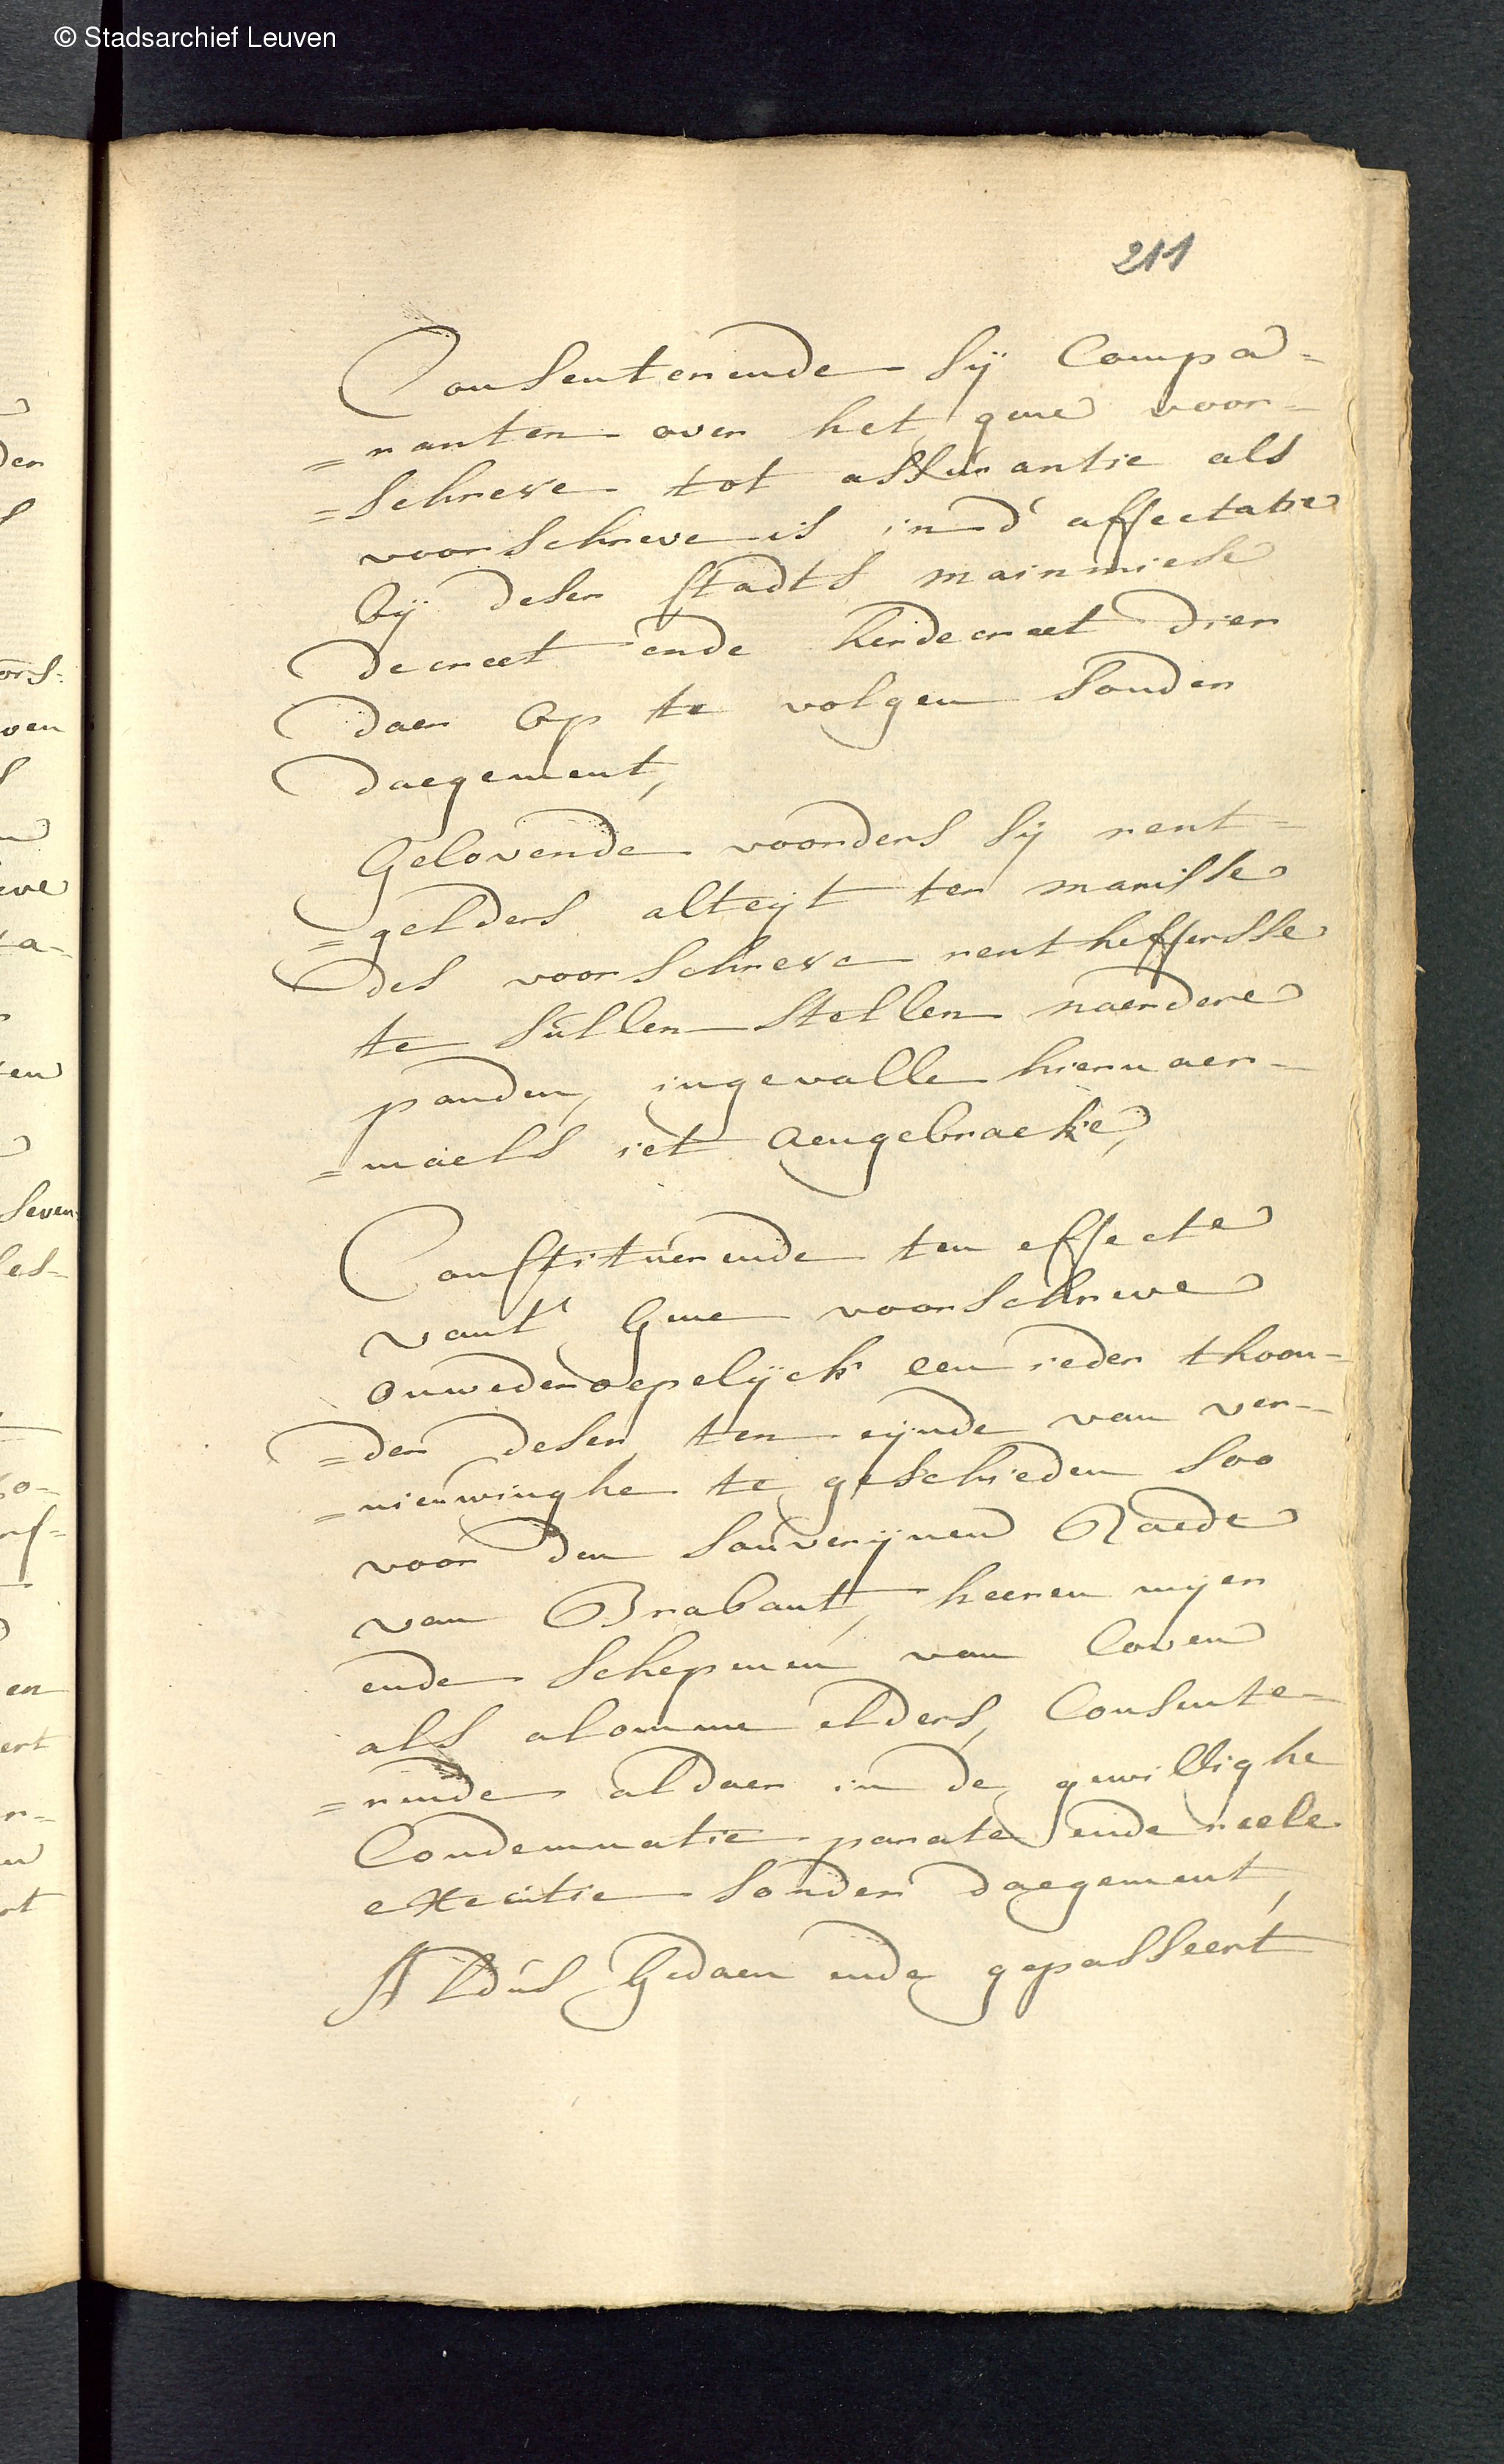 © Stadsarchief Leuven
211
Consenterende sij Compa=
=ranten over het gene voor=
=schreve tot assurantie als
voorschreve is in d' affectatie
bij deser stadts mainmiese
decreet ende herdecreet dier
daer op te volgen sonder
daegement,
Gelovende voorders sij rent=
=gelders alteijt ter manisse
des voorschreve rentheffersse
te sullen stellen naerdere
panden, ingevalle hiernaer=
=maels iet aengebraeke,
Constituerende ten effecte
vant' gene voorschreve
onwederoepelijck een ieder thoon=
=der deser ten eijnde van ver=
=nieuwinghe te geschieden soo
voor den souverijnen Raede
van Brabant, heeren meyer
ende schepenen van Loven
als alomme elders, Consente=
=rende aldaer in de gewillighe
Condemnatie parate ende reele
executie sonder daegement,
Aldus Gedaen ende gepasseert